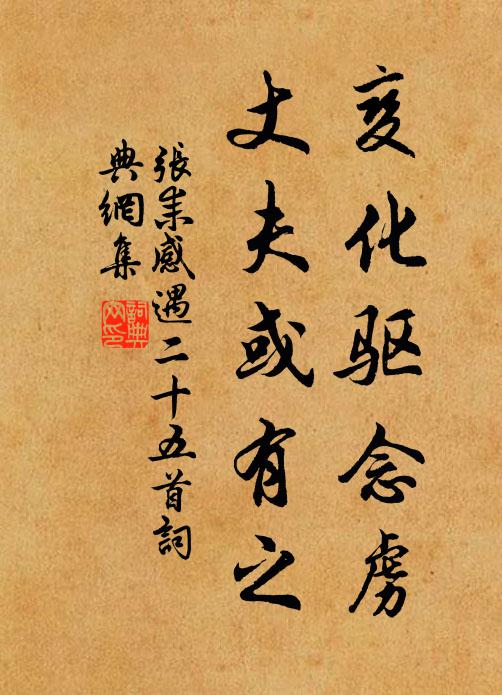 变化驱念虏
丈夫或有之
張耒感遇二十五首詞
典網集
詞典网印